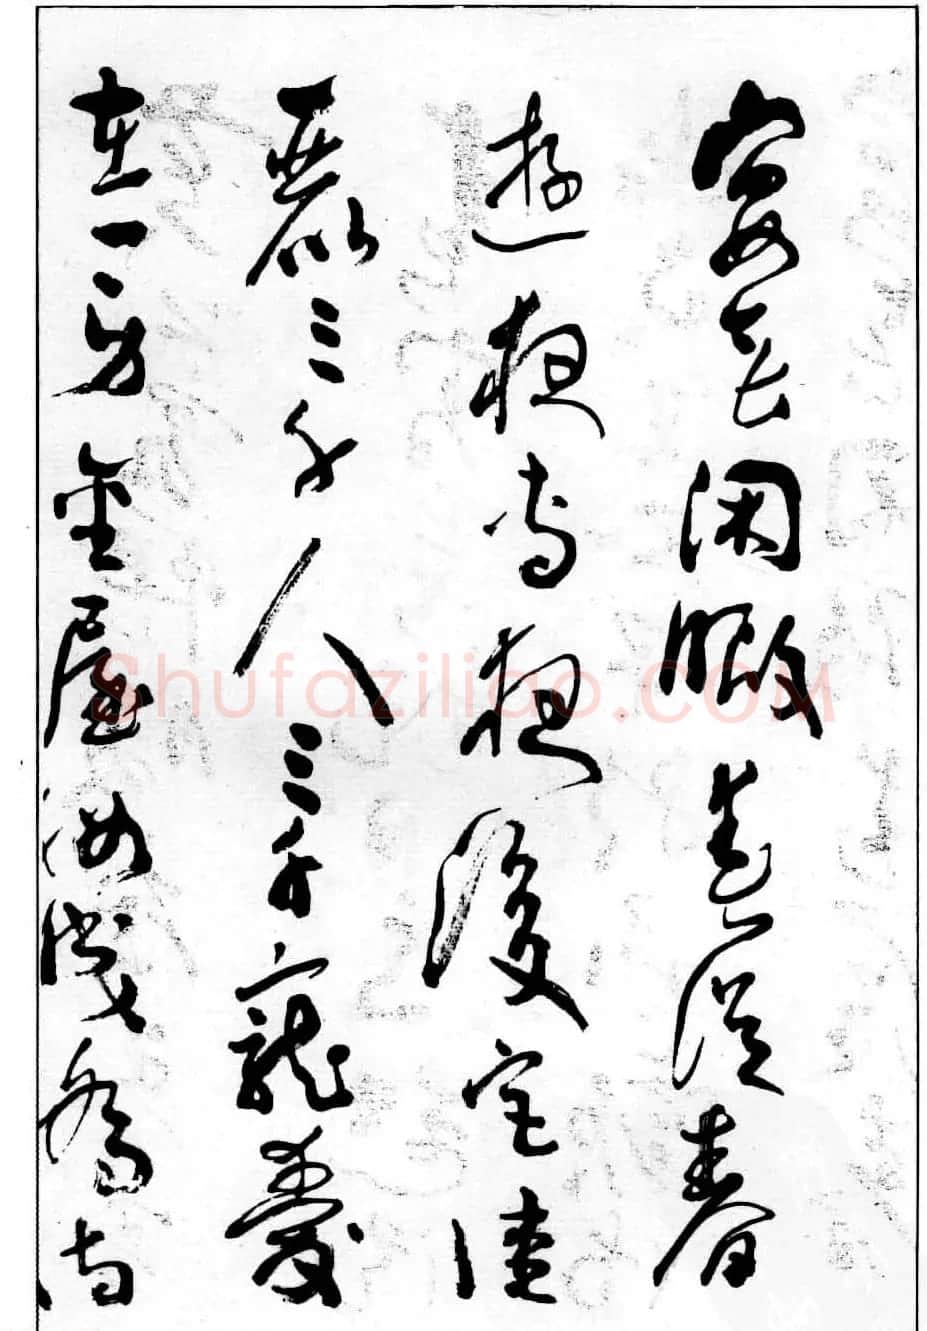 宴無閑暇春從春
遊夜專夜後宮佳
麗三千人三千寵愛
在一身金屋妝成嬌侍
Shufaziliao.COM